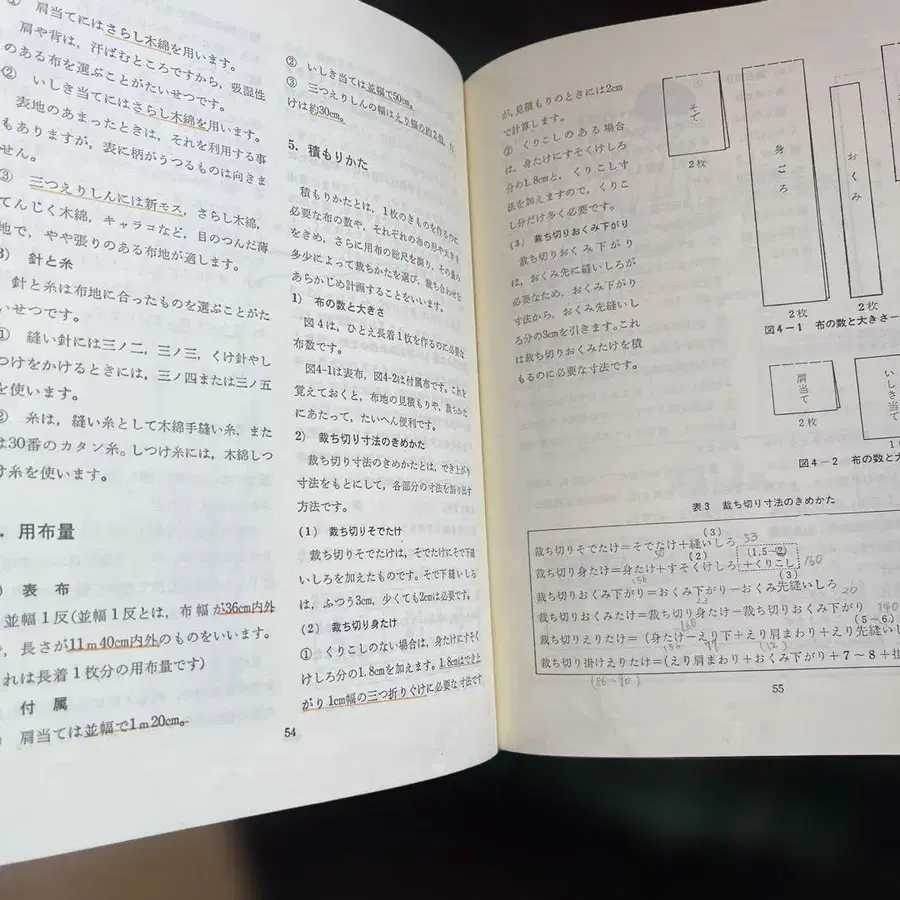 ① 肩当てにはさらし木綿を用います。
肩や背は，汗ばむところですから，吸湿性
のある布を選ぶことがたいせつです。
② いしき当てにはさらし木綿を用います。
表地のあまったときは，それを利用する事
もありますが，表に柄がうつるものは向きま
せん。
③ 三つえりしんには新モス，さらし木綿，
てんじく木綿，キャラコなど，目のつんだ薄
地で，やや張りのある布地が適します。
3) 針と糸
針と糸は布地に合ったものを選ぶことがた
いせつです。
① 縫い針には三ノ二，三ノ三，くけ針やし
つけをかけるときには，三ノ四または三ノ五
を使います。
② 糸は，縫い糸として木綿手縫い糸，また
は30番のカタン糸。しつけ糸には，木綿しつ
け糸を使います。
用布量
表布
並幅1反(並幅1反とは，布幅が36cm内外
，長さが11m40cm内外のものをいいます。
れは長着1枚分の用布量です)
付属
肩当ては並幅で1m20cm。
② いしき当ては並幅で50cm。
③ 三つえりしんの幅はえり幅の約2倍，た
けは約30cm。
5. 積もりかた
積もりかたとは，1枚のきものを作るのに
必要な布の数や，それぞれの布の形や大きさ
をきめ，さらに用布の総尺を調り，その量の
多少によって裁ちかたを選び，裁ち合わせを
あらかじめ計画することをいいます。
1) 布の数と大きさ
図4は，ひとえ長着1枚を作るのに必要な
布数です。
図4-1は表布，図4-2は付属布です。これを
覚えておくと，布地の見積もりや，裁ちかた
にあたって，たいへん便利です。
2) 裁ち切り寸法のきめかた
裁ち切り寸法のきめかたとは，でき上がり
寸法をもとにして，各部分の寸法を割り出す
方法です。
(1) 裁ち切りそでたけ
裁ち切りそでたけは，そでたけにそで下縫
いしろを加えたものです。そで下縫いしろ
は，ふつう3cm，少くても2cmは必要です。
(2) 裁ち切り身たけ
① くりこしのない場合は，身たけにすそく
けしろ分の1.8cmを加えます。1.8cmはでき上
がり1cm幅の三つ折りぐけに必要な寸法です
54
が，見積もりのときには2cm
で計算します。
② くりこしのある場合
は，身たけにすそくけしろ
分の1.8cmと，くりこし寸
法を加えますので，くりこ
し分だけ多く必要です。
(3) 裁ち切りおくみ下がり
裁ち切りおくみ下がり
は，おくみ先に縫いしろが
必要なため，おくみ下がり
寸法から，おくみ先縫いし
ろ分の3cmを引きます。これ
は裁ち切りおくみたけを積
もるのに必要な寸法です。
そで
2枚
身ごろ
2枚
おくみ
2枚
図4-1 布の数と大きさ
肩当て
2枚
いしき当て
図4-2 布の数と大
表3 裁ち切り寸法のきめかた
(3)
裁ち切りそでたけ=そでたけ+縫いしろ 53
(2) (1.5~②)
裁ち切り身たけ=身たけ+すそくけしろ+くりこし 160
(3)
裁ち切りおくみ下がり=おくみ下がり-おくみ先縫いしろ 20
裁ち切りおくみたけ=裁ち切り身たけ-裁ち切りおくみ下がり 140
(5~6)
裁ち切りえりたけ=(身たけ-えり下+えり肩まわり+えり先縫い
(12)
裁ち切り掛けえりたけ=(えり肩まわり+おくみ下がり+7~8+掛
(86~90)
55